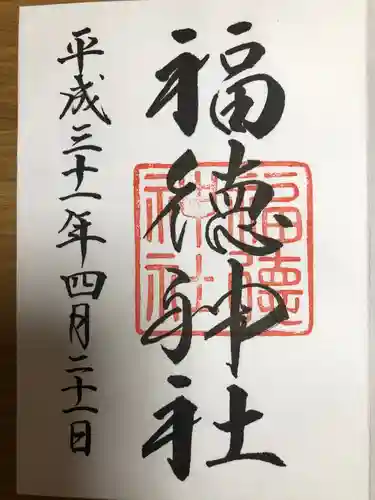 福徳神社
福徳神社
平成三十一年四月二十一日